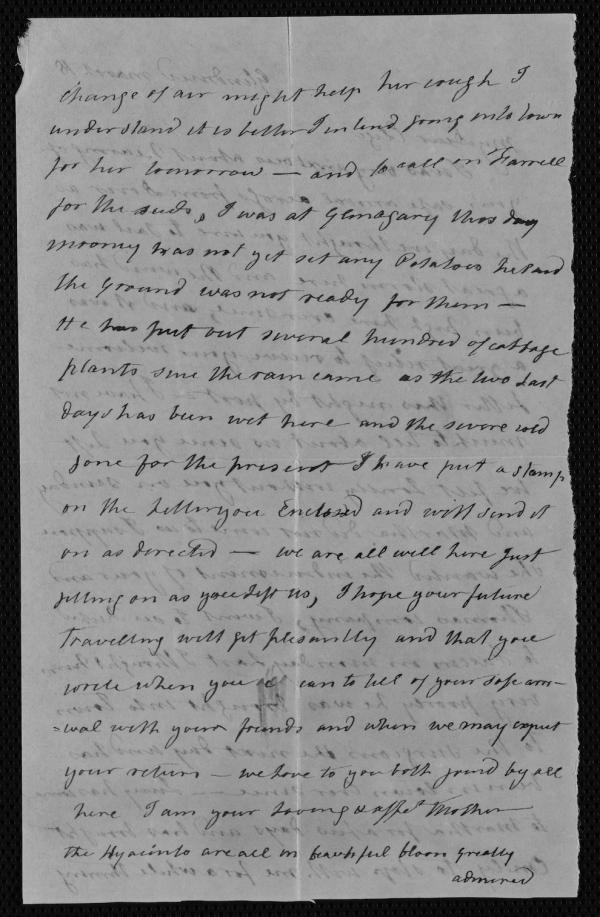 change of air might help her cough I
understand it is better I intend going into town
for her tomorrow — and to call on Farrell
for the seeds, I was at Glenagary this day
Mooney has not yet set any Potatoes he said
the ground was not ready for them —
He has put out several hundred of cabbage
plants since the rain came as the two last
days has been wet here and the severe cold
gone for the present I have put a stamp
on the letter you Enclosed and will send it
on as directed — we are all well here Just
gitting on as you left us, I hope your future
Travelling will get plesantly and that you
write when you can to tell of your safe arri-
=wal with your friends and when we may expect
your return — we love to you both joind by all
here I am your loving & affet Mother
the Hyacinto are all in beautiful bloom greatly
admired